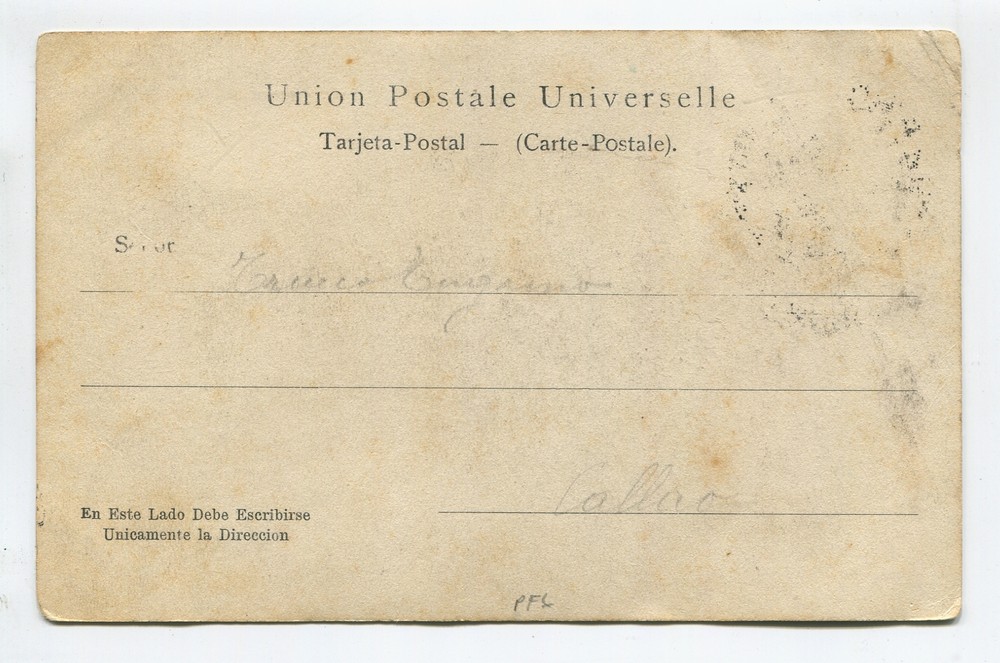 Union Postale Universelle
Tarjeta-Postal — (Carte-Postale).
Callao
En Este Lado Debe Escribirse
Unicamente la Direccion